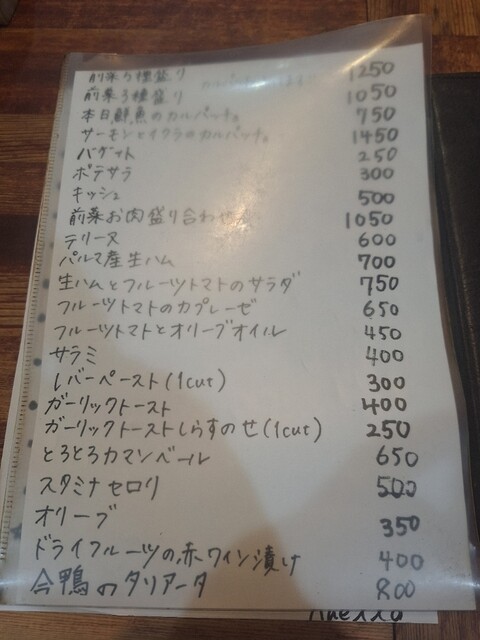 前菜5種盛り 1250
前菜3種盛り 1050
本日鮮魚のカルパッチョ 750
サーモンとイクラのカルパッチョ 1450
バゲット 250
ポテサラ 300
キッシュ 500
前菜お肉盛り合わせ 1050
テリーヌ 600
パルマ産生ハム 700
生ハムとフルーツトマトのサラダ 750
フルーツトマトのカプレーゼ 650
フルーツトマトとオリーブオイル 450
サラミ 400
レバーペースト(1cut) 300
ガーリックトースト 400
ガーリックトーストしらすのせ(1cut) 250
とろとろカマンベール 650
スタミナセロリ 500
オリーブ 350
ドライフルーツの赤ワイン漬け 400
合鴨のタリアータ 800